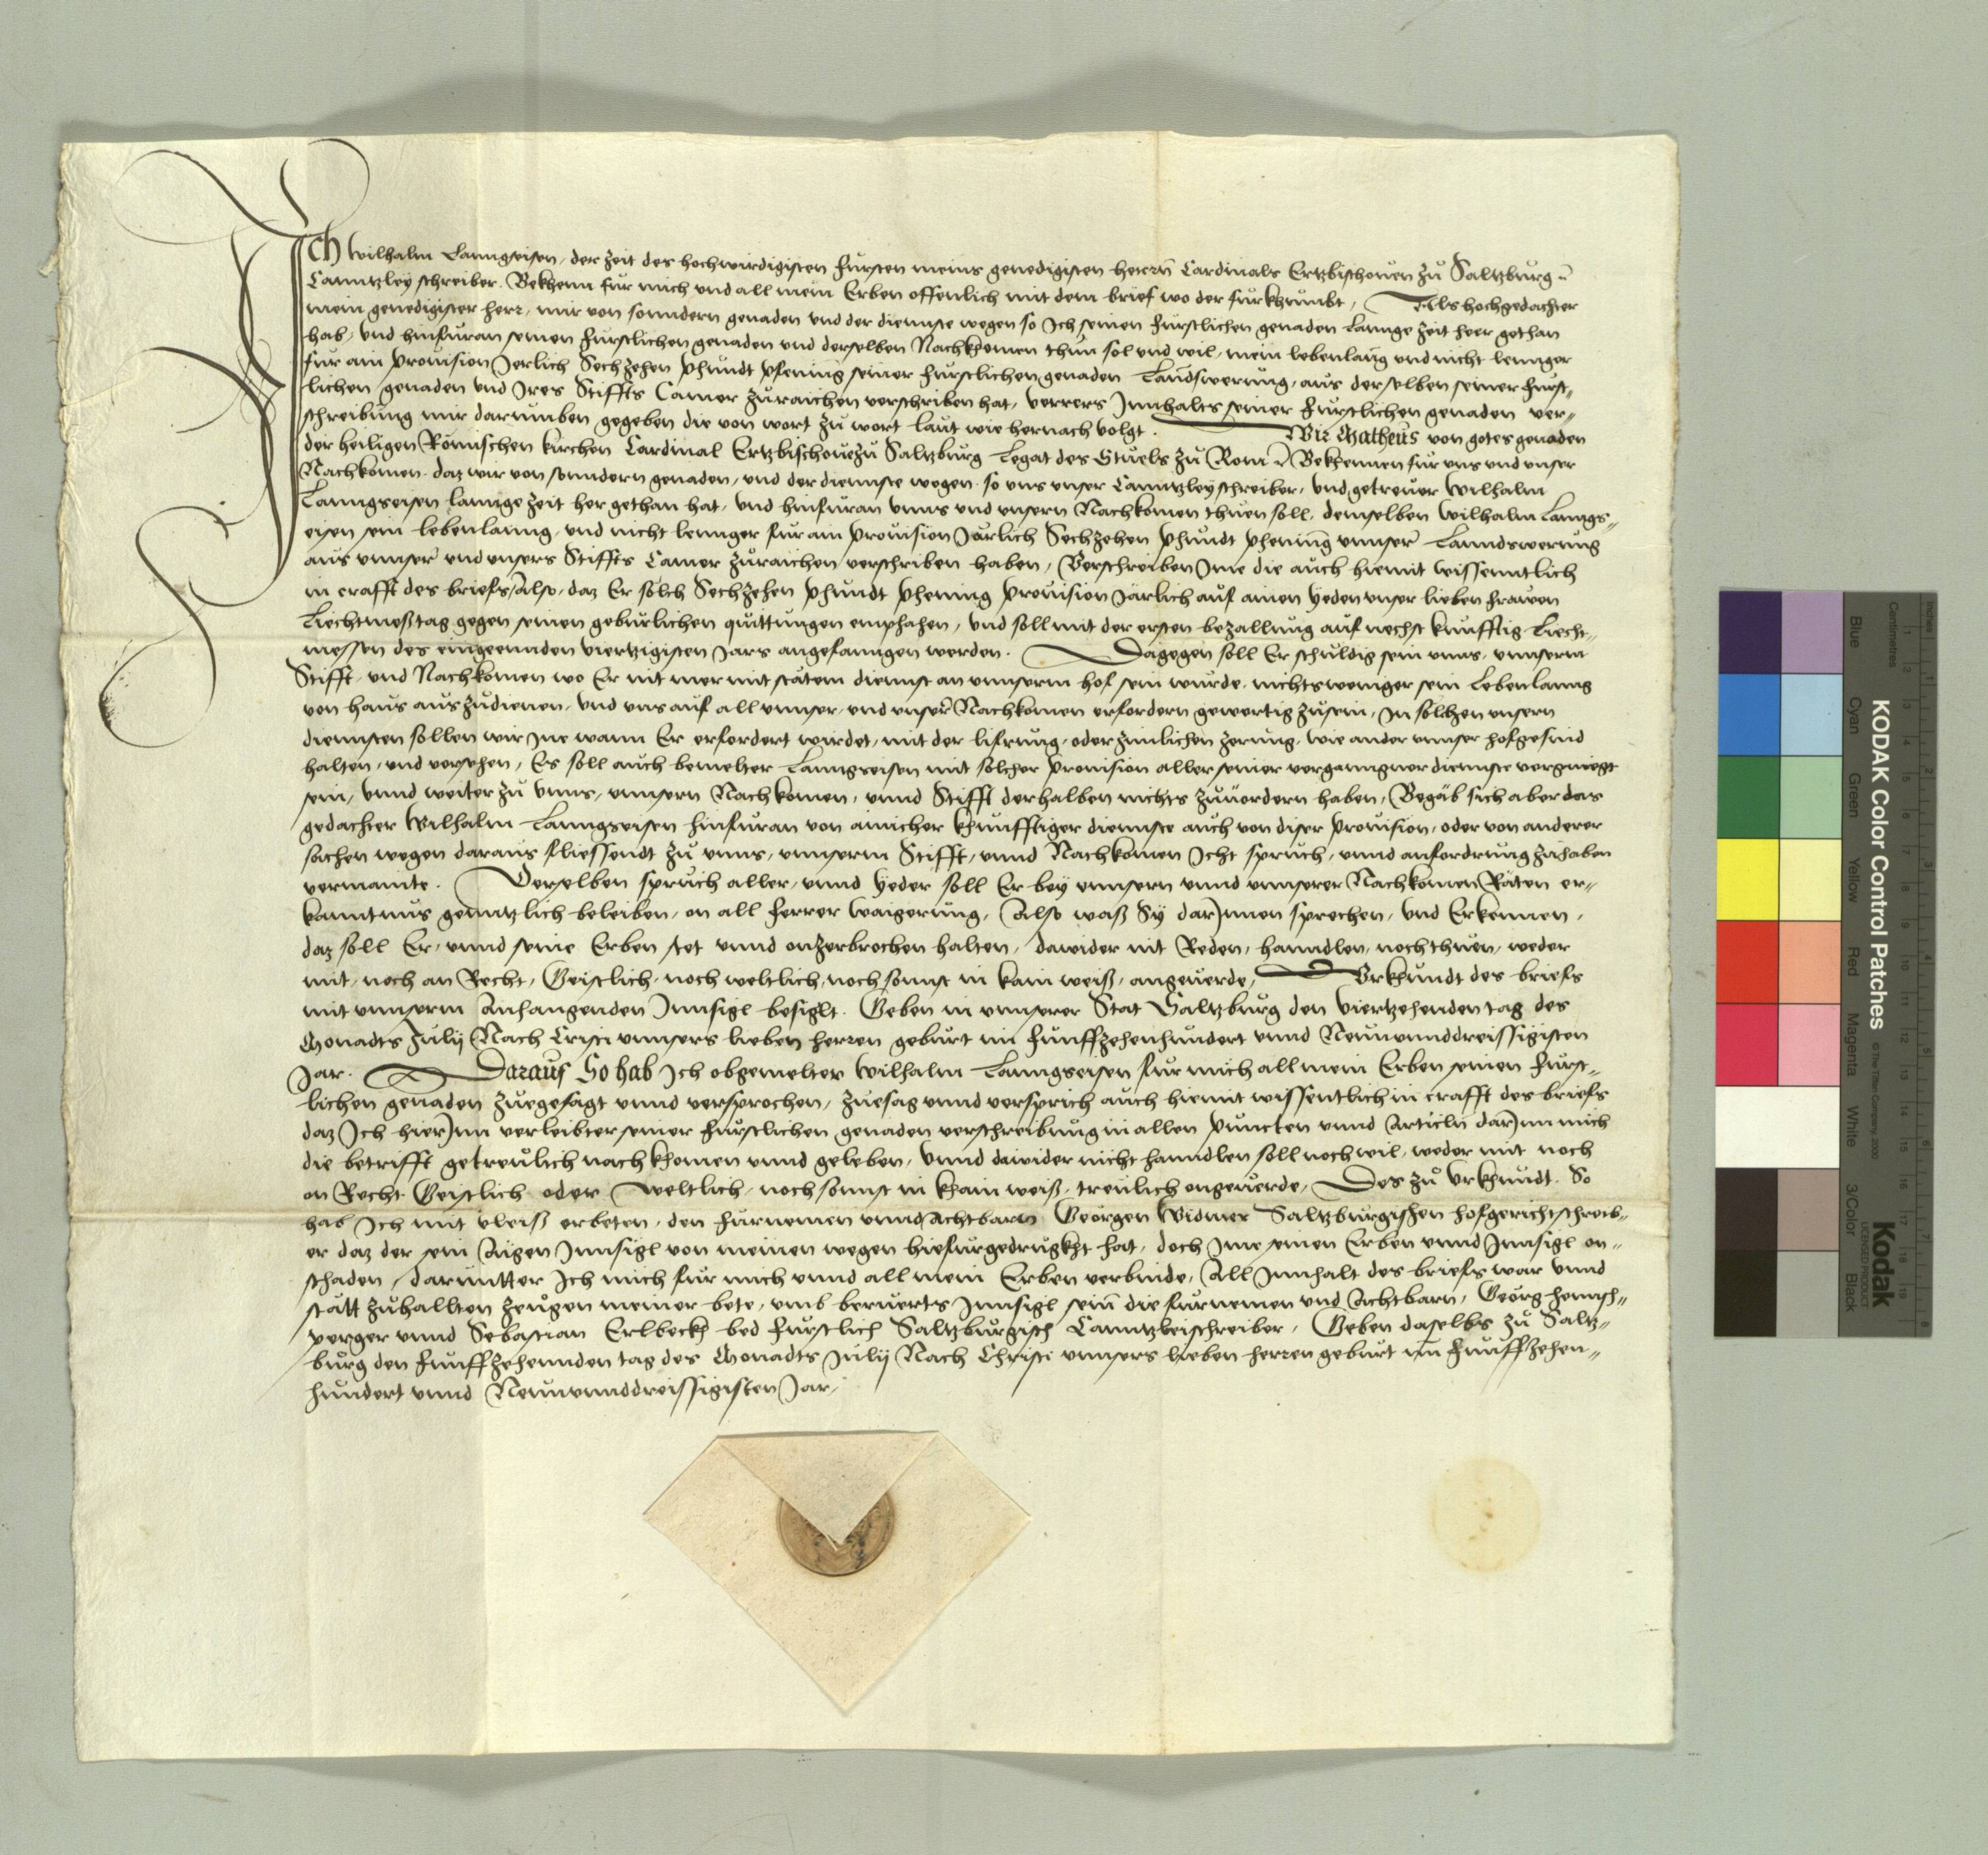 Ich Wilhalm Lanngeisen, der zeit des hochwirdigisten fursten meins genedigisten herrn Cardinals Ertzbischouen zu Saltzburg
Canntzleyschreiber. Bekhenn fur mich und all mein Erben offenlich mit dem brief wo der furkhumbt, Als hochgedachter
mein genedigister herr, mir von sonndern genaden und der diennste wegen so Ich seinen furstlichen genaden lannge zeit heer gethan
hab, und hinfuran seinen furstlichen genaden und derselben Nachkhomen thun sol und wil, mein lebenlang und nicht lennger
fur ain prouision Jerlich Sechzehen phundt pfening seiner furstlichen genaden Landswerung, aus derselben seiner furst„
lichen genaden und Ires Stiffts Camer zuraichen verschriben hat, verrers Innhalts seiner furstlichen genaden ver„
schreibung mir darumben gegeben die von wort zu wort laut wie hernach volgt. Wir Matheus von gotes genaden
der heiligen Römischen kirchen Cardinal Ertzbischoue zu Saltzburg Legat des Stuels zu Rom Bekhennen fur uns und unser
Nachkomen. daz wir von sonndern genaden, und der diennste wegen. so uns unser Canntzleyschreiber, und getreuer Wilhalm
Lanngseisen lannge zeit her gethan hat, und hinfuran unns und unsern Nachkomen thuen soll, demselben Wilhalm Lanngs„
eisen sein lebenlanng, und nicht lennger fur ain prouision Järlich Sechzehen phundt phening unnser Lanndswerung
aus unnser und unsers Stiffts Camer zuraichen verschriben haben, Verschreiben Ime die auch hiemit wissenntlich
in crafft des briefs, Also, daz Er solch Sechzehen phundt phening prouision järlich auf ainen yeden unser lieben frawen
Liechtmeßtag gegen seinen geburlichen quittungen emphahen, und soll mit der ersten bezallung auf nechst kunfftig Liecht„
messen des eingeennden viertzigisten Jars angefanngen werden. Dagegen soll Er schuldig sein unns, unnserm
Stifft, und Nachkomen wo Er nit mer mit stätem diennst an unnserm hof sein wurde, nichtsweniger sein Lebenlanng
von haus aus zudienen, und uns auf all unnser, und unser Nachkomen erfordern gewertig zusein, In solhen unsern
diennsten sollen wir Ine wann Er erfordert wirdet, mit der lifrung, oder zimlichen zerung, wie ander unnser hofgesind
halten, und versehen, Es soll auch bemelter Lanngseisen mit solcher prouision aller seiner verganngner diennste vergnuegt
sein, unnd weiter zu unns, unnsern Nachkomen, unnd Stifft derhalben nichts zuuordern haben, Begäb sich aber das
gedachter Wilhalm Lanngseisen hinfuran von ainicher khunfftiger diennste auch von diser prouision, oder von anderer
sachen wegen daraus fliessendt zu unns, unnserm Stifft, unnd Nachkomen Icht spruch, unnd anfordrung zuhaben
vermainte. Derselben spruch aller, unnd yeder soll Er bey unnsern unnd unnserer Nachkomen Räten er„
kanntnus genntzlich beleiben, on all ferrer waigerung, Also waß Sy darInnen sprechen, und Erkennen,
daz soll Er, unnd seine Erben stet unnd onzerbrochen halten, dawider nit Reden, hanndlen, noch thuen, weder
mit, noch an Recht, Geistlich, noch weltlich, noch sonnst in kain weiß, angeuerde, Urkhundt des briefs
mit unnserm Anhangenden Innsigl besiglt. Geben in unnserer Stat Saltzburg den viertzehenden tag des
Monadts Julij Nach Cristi unnsers lieben herren geburt im funffzehenhundert unnd Neununnddreissigisten
Jar. Daraus So hab Ich obgemelter Wilhalm Lanngseisen fur mich all mein Erben seinen furst„
lichen genaden zuegesagt unnd versprochen, zuesag unnd versprich auch hiemit wissentlich in crafft des briefs
daz Ich hierInn verleibter seiner furstlichen genaden verschreibung in allen puncten unnd Articln darInn mich
die betrifft getreulich nachkhomen unnd geleben, unnd dawider nicht hanndlen soll noch wil, weder mit noch
on Recht Geistlich oder weltlich, noch sonnst in khain weiß, treulich ongeuerde, Des zu Urkhundt. So
hab Ich mit vleiß erbeten, den furnemen unnd Achtbarn Georgen Widmer Saltzburgischen hofgerichtschreib„
er daz der sein Aigen Innsigl von meinen wegen hiefurgedrugkht hat, doch Ime seinen Erben unnd Innsigl on„
schaden, darunter Ich mich fur mich unnd all mein Erben verbinde, All Innhalt des briefs war unnd
stätt zuhallten zeugen meiner bete, umb beruerts Innsigl sein die furnemen und Achtbarn, Georg hennsh„
perger unnd Sebastian Erlbeckh bed furstlich Saltzburgisch Canntzleischreiber, Geben daselbs zu Saltz„
burg den funffzehennden tag des Monadts Julij Nach Christi unnsers lieben herren geburt im funffzehen„
hundert unnd Neununnddreissigisten Jar,
KODAK Color Control Patches
© The Tiffen Company, 2000
Kodak
LICENSED PRODUCT
Blue Cyan Green Yellow Red Magenta White 3/Color Black
Inches
Centimetres